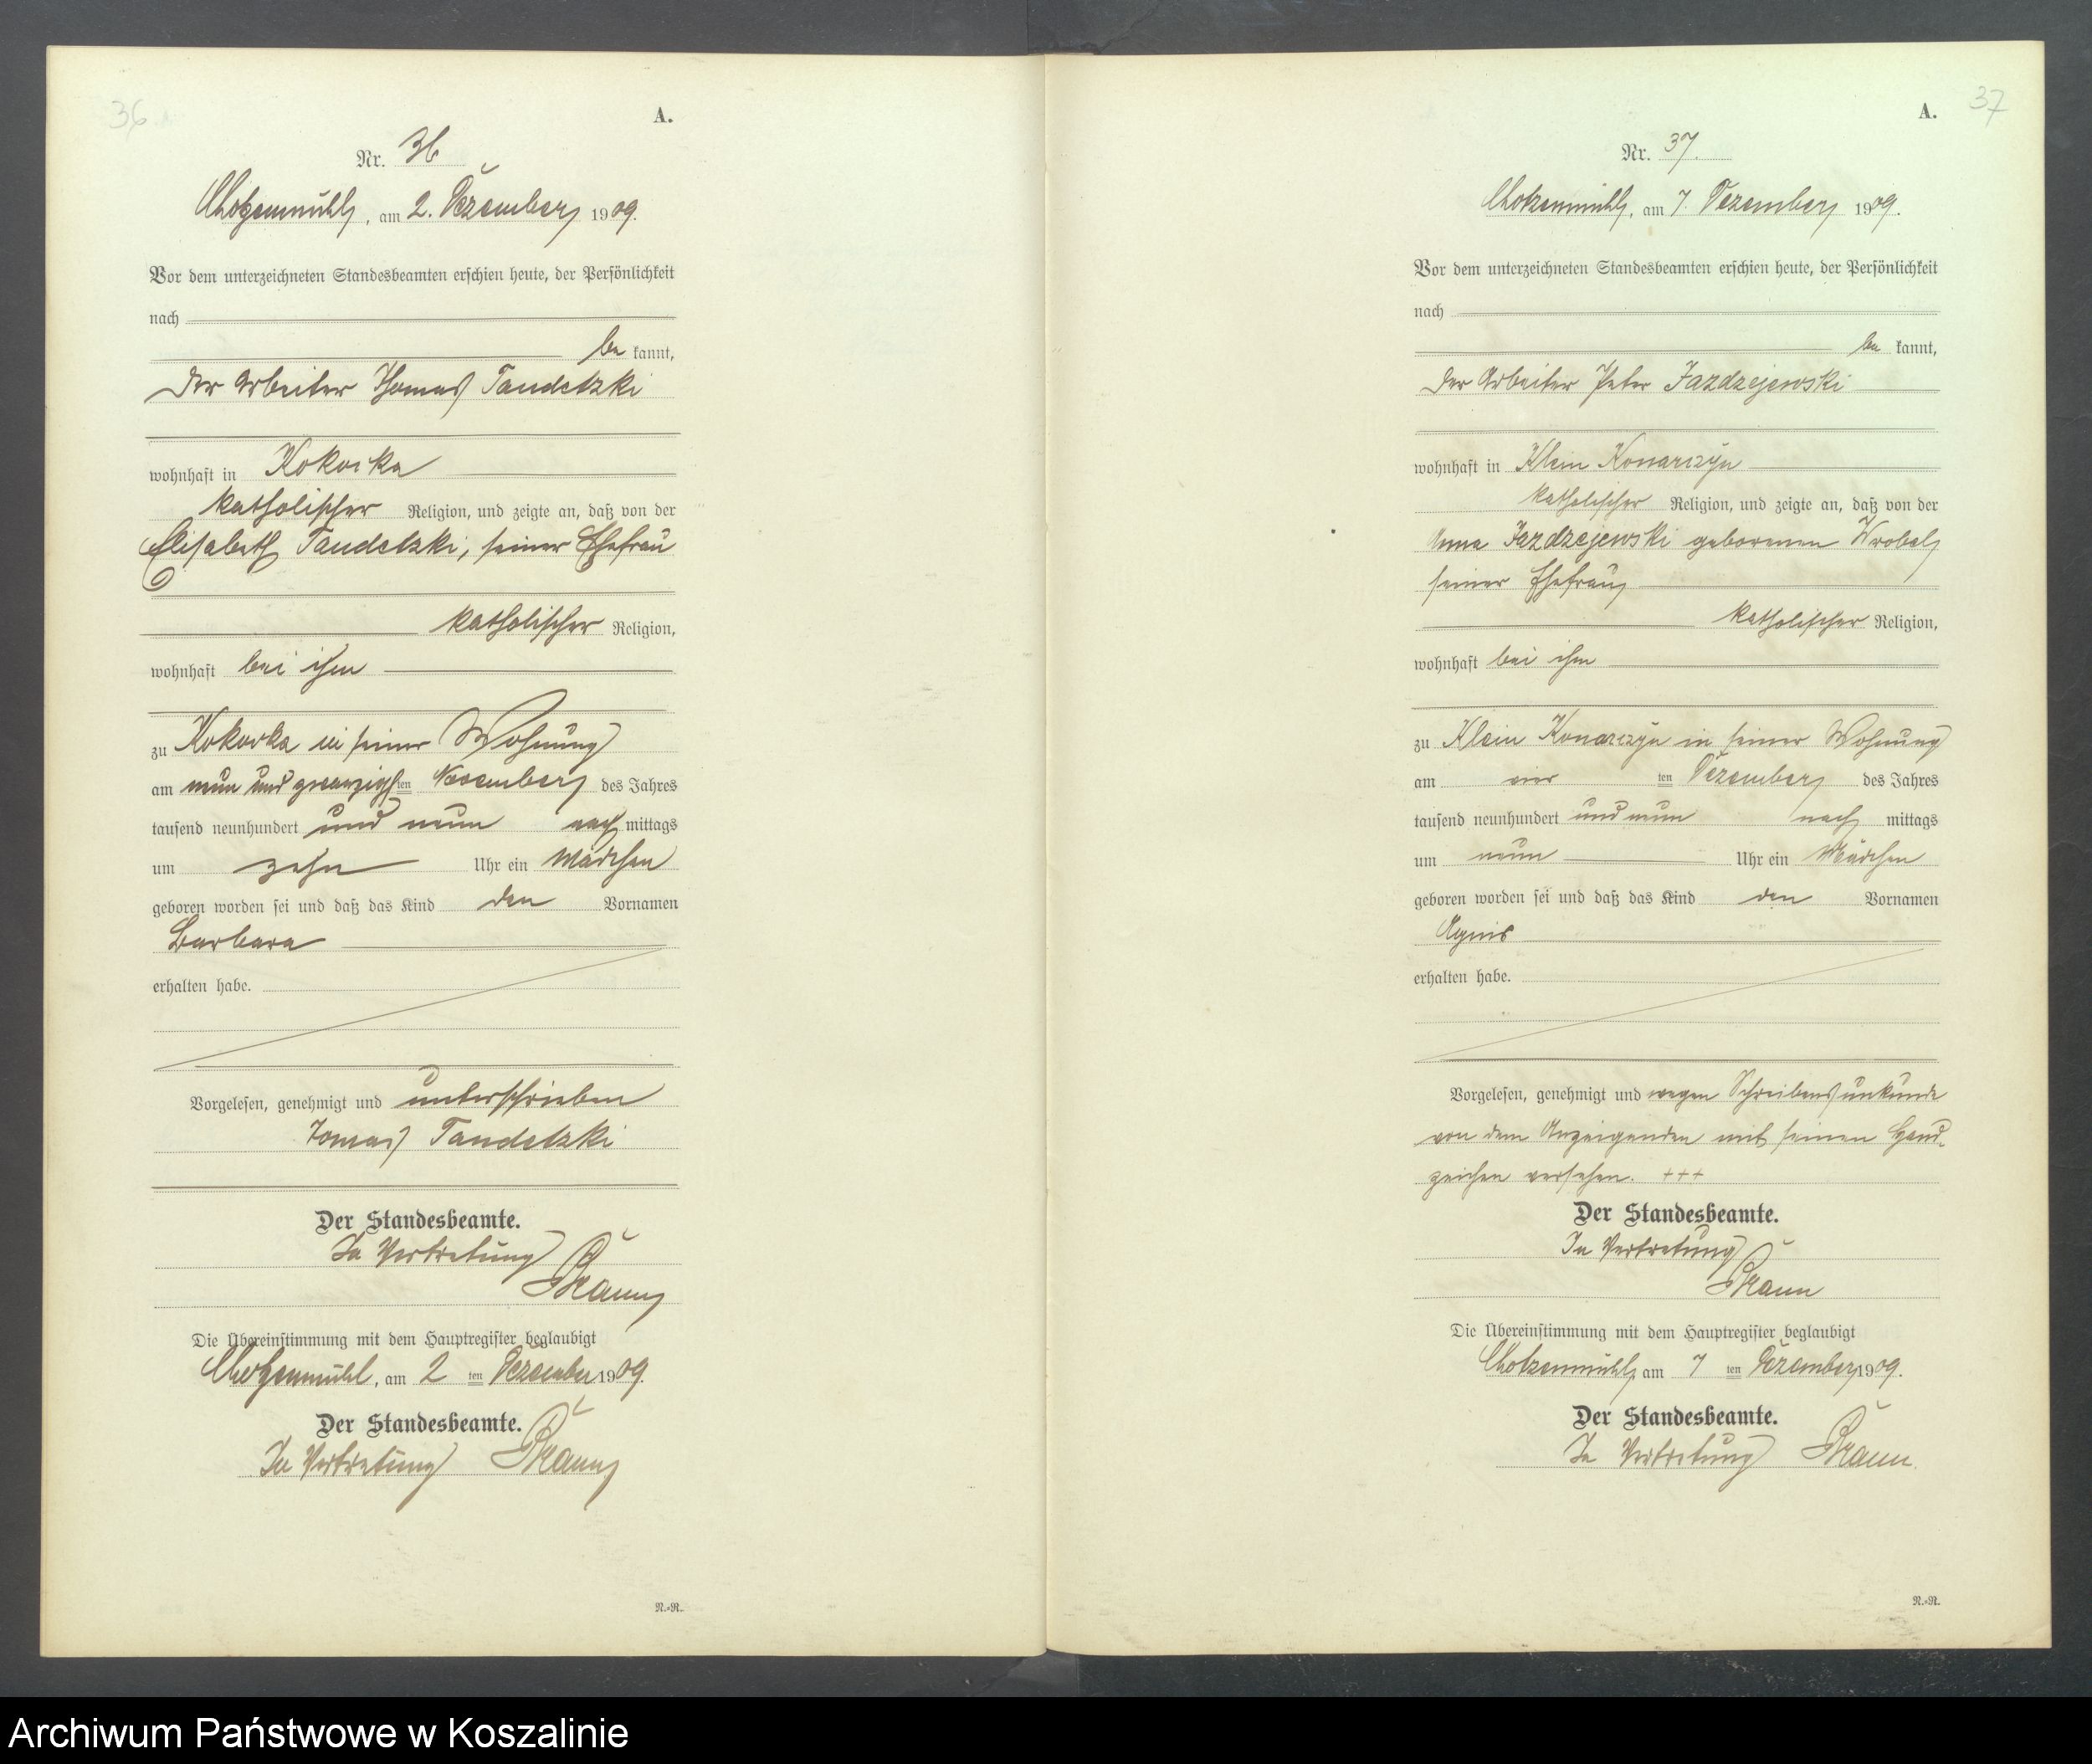 36
A.
Nr. 36
Chotzenmühl, am 2. Dezember 1909.
Vor dem unterzeichneten Standesbeamten erschien heute, der Persönlichkeit
nach
be kannt,
der Arbeiter Thomas Tandetzki
wohnhaft in Kokoska
katholischer Religion, und zeigte an, daß von der
Elisabeth Tandetzki, seiner Ehefrau
katholischer Religion,
wohnhaft bei ihm
zu in seiner Wohnung
am neun und zwanzigsten November des Jahres
tausend neunhundert und neun nach mittags
um zehn Uhr ein Mädchen
geboren worden sei und daß das Kind den Vornamen
Barbara
erhalten habe.
Vorgelesen, genehmigt und unterschrieben
Tomas Tandetzki
Der Standesbeamte.
In Vertretung
Braun
Die Übereinstimmung mit dem Hauptregister beglaubigt
Chotzenmühl, am 2 ten Dezember 1909.
Der Standesbeamte.
In Vertretung Braun
N.=R.
37
A.
Nr. 37.
Chotzenmühl, am 7. Dezember 1909.
Vor dem unterzeichneten Standesbeamten erschien heute, der Persönlichkeit
nach
be kannt,
der Arbeiter Peter Jazdzejewski
wohnhaft in Klein Konarczyn
katholischer Religion, und zeigte an, daß von der
Anna Jazdzejewski geborenen Wrobel,
seiner Ehefrau,
katholischer Religion,
wohnhaft bei ihm
zu Klein Konarczyn in seiner Wohnung
am vier ten Dezember des Jahres
tausend neunhundert und neun nach mittags
um neun Uhr ein Mädchen
geboren worden sei und daß das Kind den Vornamen
Agnes
erhalten habe.
Vorgelesen, genehmigt und wegen Schreibensunkunde
von dem Anzeigenden mit seinem Hand-
zeichen versehen. +++
Der Standesbeamte.
In Vertretung
Braun
Die Übereinstimmung mit dem Hauptregister beglaubigt
Chotzenmühl, am 7 ten Dezember 1909.
Der Standesbeamte.
In Vertretung Braun.
N.=R.
Archiwum Państwowe w Koszalinie